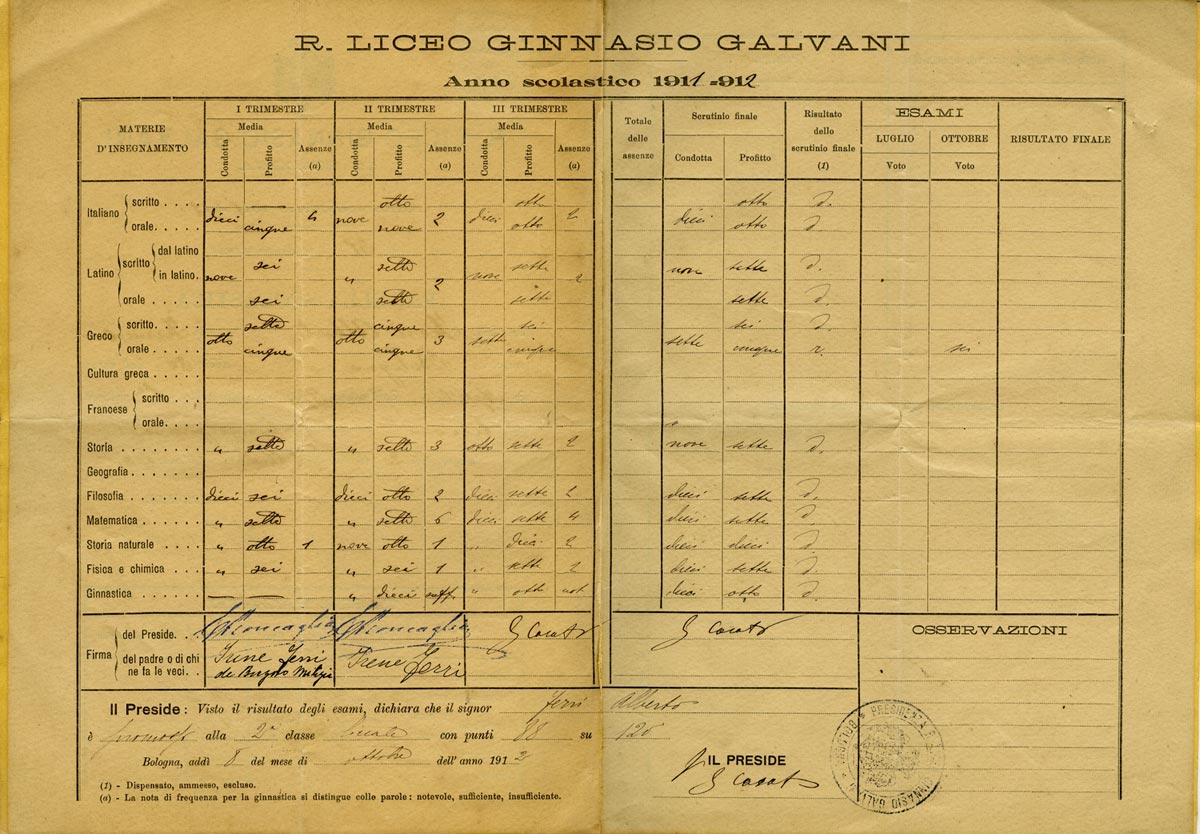 R. LICEO GINNASIO GALVANI
Anno scolastico 1911-912
MATERIE D'INSEGNAMENTO I TRIMESTRE II TRIMESTRE III TRIMESTRE Totale delle assenze Scrutinio finale Risultato dello scrutinio finale (1) ESAMI RISULTATO FINALE
Media Media Media LUGLIO OTTOBRE
Condotta Profitto Assenze (a) Condotta Profitto Assenze (a) Condotta Profitto Assenze (a) Condotta Profitto Voto Voto
Italiano scritto — otto otto otto d.
orale dieci cinque 4 nove nove 2 dieci otto 2 dieci otto d
Latino scritto dal latino in latino nove sei „ sette 2 nove sette 2 nove sette d.
orale sei sette sette sette d.
Greco scritto sette cinque sei sei d.
orale otto cinque otto cinque 3 sette cinque sette cinque r. sei
Cultura greca
Francese scritto
orale
Storia „ sette „ sette 3 otto sette 2 nove sette d.
Geografia
Filosofia dieci sei dieci otto 2 dieci sette 2 dieci sette d.
Matematica „ sette „ sette 6 dieci sette 4 dieci sette d
Storia naturale „ otto 1 nove otto 1 „ dieci 2 dieci dieci d.
Fisica e chimica „ sei „ sei 1 „ sette 2 dieci sette d.
Ginnastica — — „ dieci suff. „ otto not dieci otto d.
Firma del Preside
del padre o di chi ne fa le veci. Irene Ferri Irene Ferri
OSSERVAZIONI
Il Preside: Visto il risultato degli esami, dichiara che il signor Ferri Alberto
è promosso alla 2ª classe liceale con punti 88 su 120
Bologna, addì 8 del mese di ottobre dell'anno 1912
IL PRESIDE
(1) - Dispensato, ammesso, escluso.
(a) - La nota di frequenza per la ginnastica si distingue colle parole: notevole, sufficiente, insufficiente.